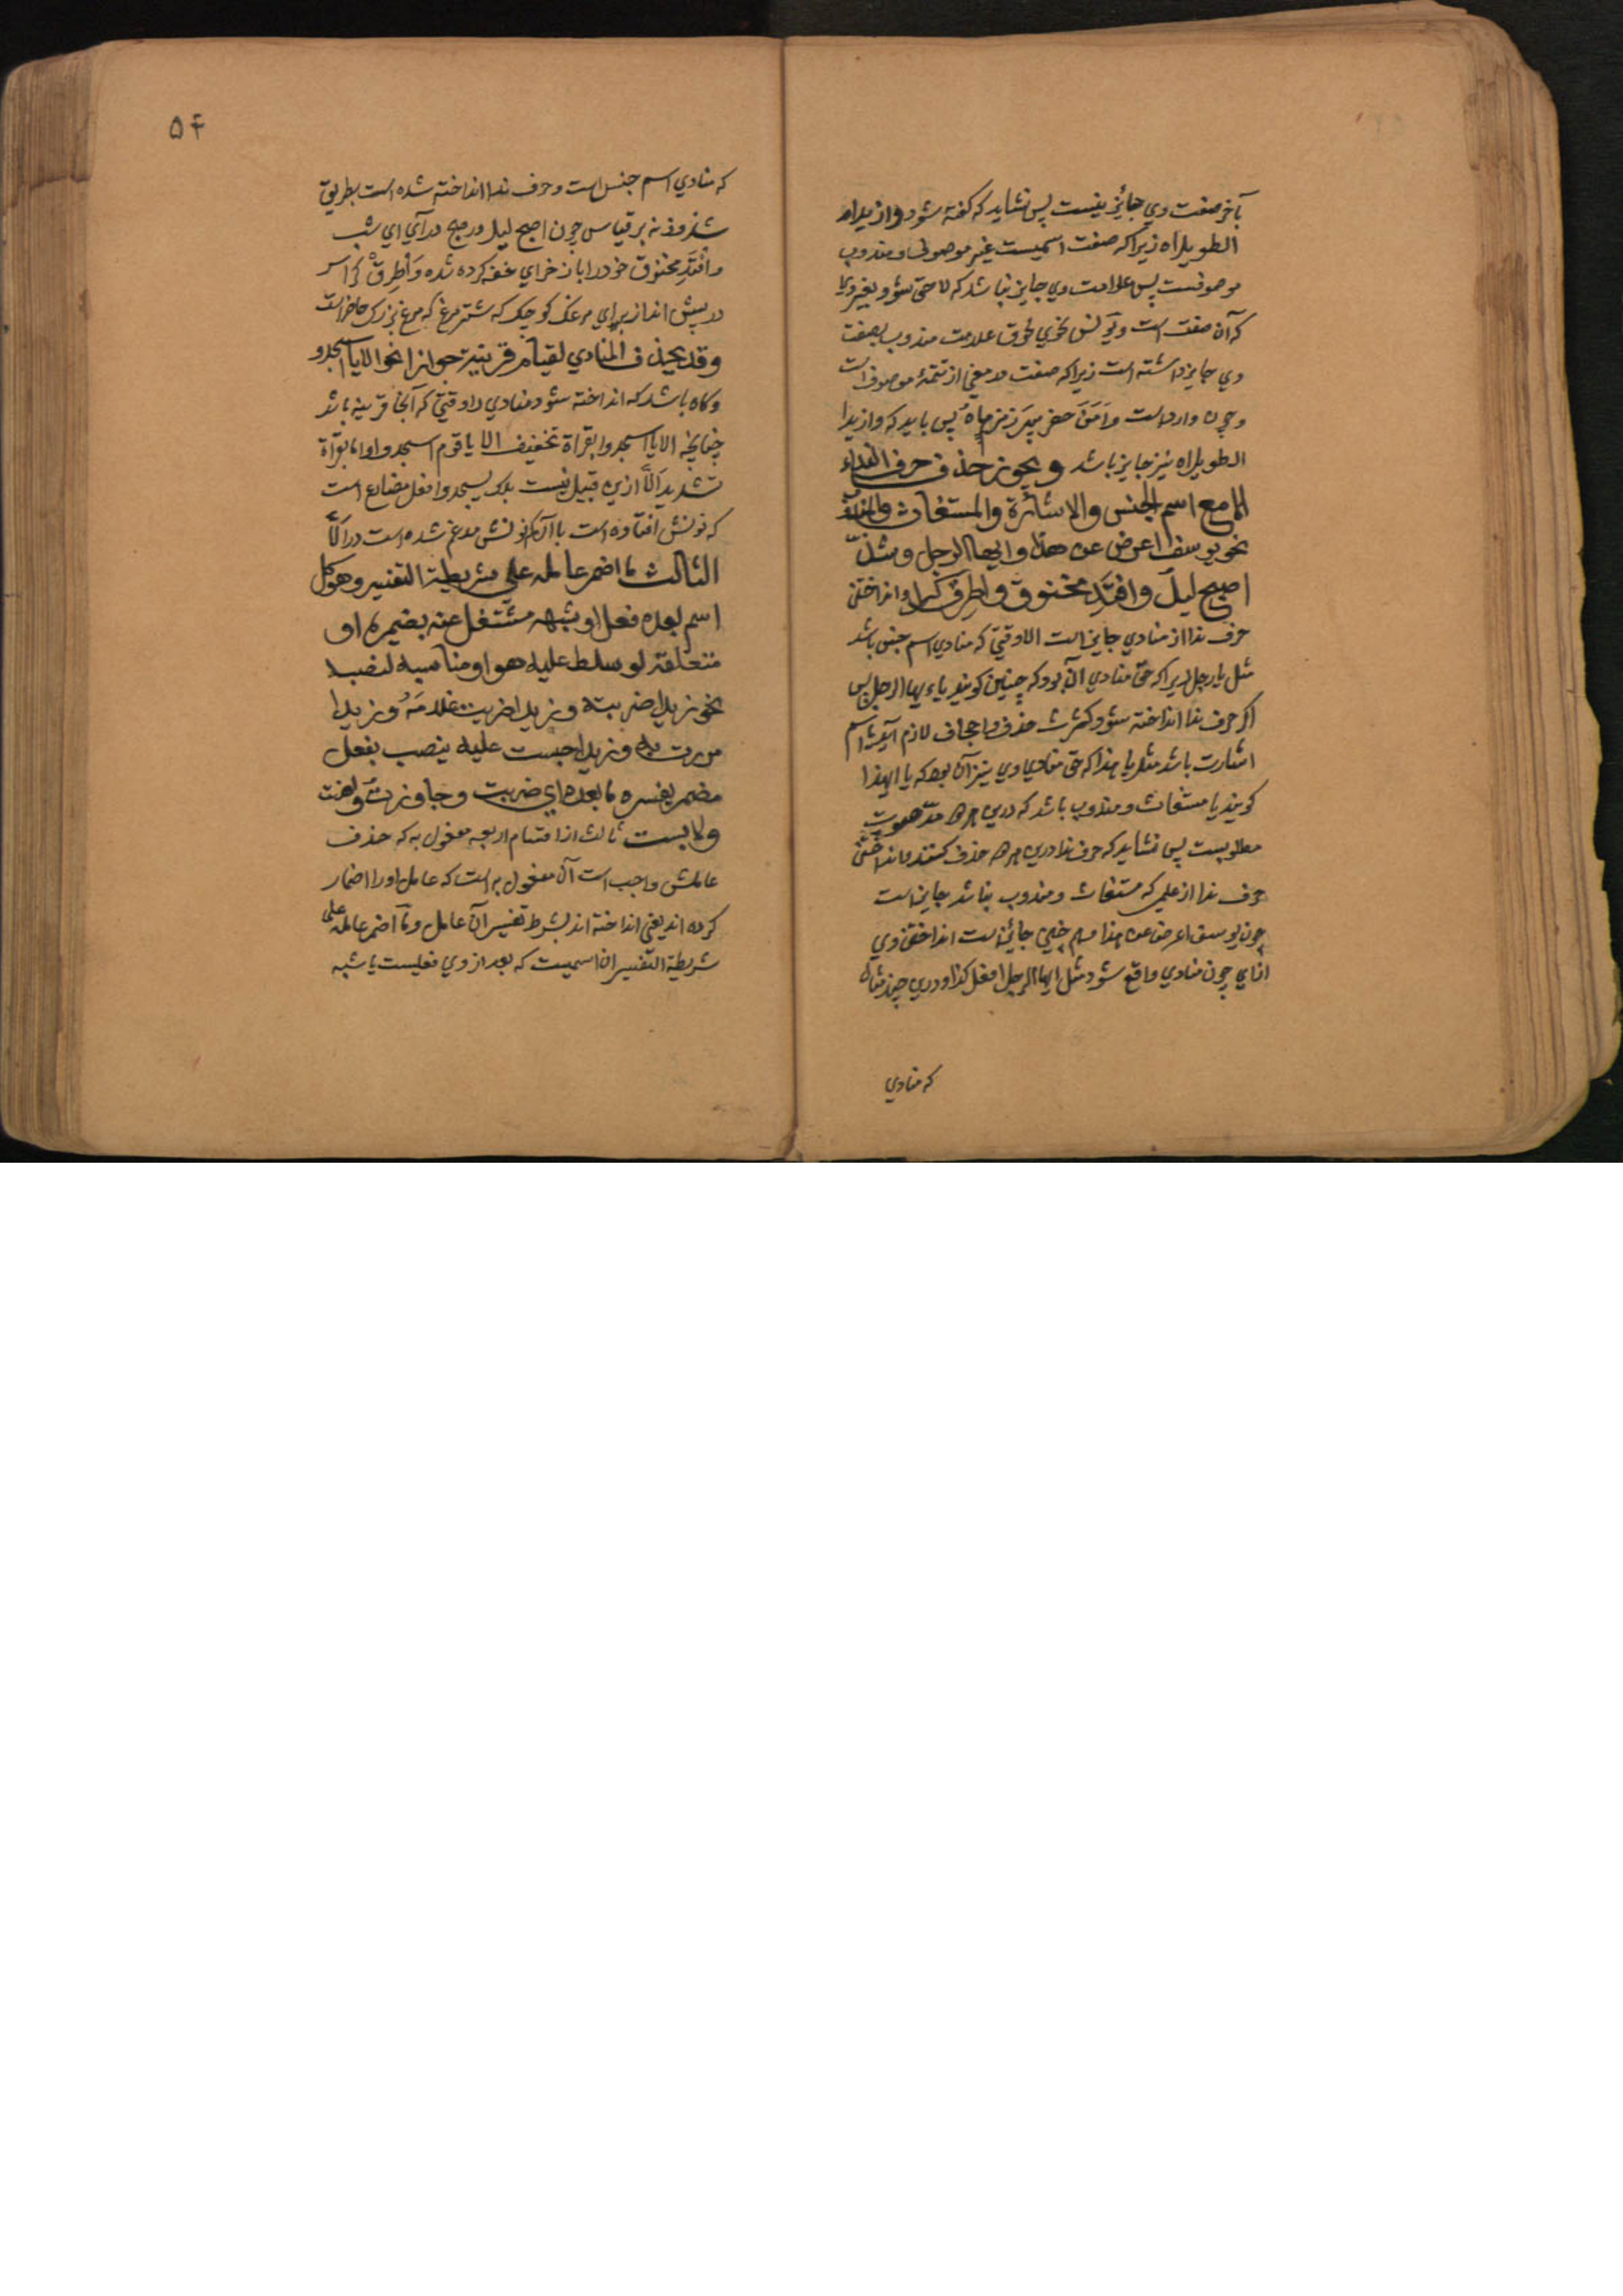 بآخر صفت وي جائز نيست پس نشايد كه كفته شود وازيداه
الطويلاه زيراكه صفت اسميست غير موصوف ومندوب
موصوفست پس علامت وي جايز نباشد كه لاحق شود بغير وي
كه آن صفت است ويونس نحوي لحوق علامت مندوب بصفت
وي جايز داشته است زيراكه صفت در معني از تتمهٔ موصوف است
وچون وارد است وامن حفر بير زمزماه پس بايد كه وازيدا
الطويلاه نيز جايز باشد ويجوز حذف حرف النداء
الا مع اسم الجنس والاشارة والمستغاث والمندوب
نحو يوسف اعرض عن هذا وايها الرجل وشذّ
اصبح ليل وافتد مخنوق واطرق كرا وانداختن
حرف ندا از منادي جايز است الا وقتي كه منادي اسم جنس باشد
مثل يا رجل زيراكه حق منادي آن بود كه چنين كويند يا ايها الرجل پس
اكر حرف ندا انداخته شود كثرت حذف واجحاف لازم آيد يا اسم
اشارت باشد مثل يا هذا كه حق منادي وي نيز آن بود كه يا ايهذا
كويند يا مستغاث ومندوب باشد كه درين هر دو مدّ صوت
مطلوبست پس نشايد كه حرف ندا درين هر دو حذف كنند وانداختن
حرف ندا از علمي كه مستغاث ومندوب نباشد جايز است
چون يوسف اعرض عن هذا وهم چنين جائز است انداختن وي
از اي چون منادي واقع شود مثل ايها الرجل افعل كذا ودرين چند مثال
كه منادي
۵۴
كه منادي اسم جنس است وحرف ندا انداخته شده است بطريق
شذوذ نه بر قياس چون اصبح ليل در صبح در آي اي شب
وافتد مخنوق خود را باز خر اي خفه كرده شده واطرق كرا سر
در پيش انداز براي مرغك كوچك كه شتر مرغ كه مرغ بزرك حاضر است
وقد يحذف المنادي لقيام قرينة جوازا نحو الا يا اسجدو
وكاه باشد كه انداخته شود منادي را وقتي كه آنجا قرينه باشد
چنانچه الا يا اسجدوا بقراة تخفيف الا يا قوم اسجدوا واما بقرآة
تشديد الّا ازين قبيل نيست بلكه يسجدوا فعل مضارع است
كه نونش افتاده است با آن كه نونش مدغم شده است در الّا
الثالث ما اضمر عامله علي شريطة التفسير وهو كل
اسم بعده فعل او شبهه مشتغل عنه بضميره او
متعلقه لو سلط عليه هو او مناسبه لنصبه
نحو زيدا ضربته وزيدا ضربت غلامه وزيدا
مررت به وزيدا حبست عليه ينصب بفعل
مضمر يفسره ما بعده اي ضربت وجاوزت واهنت
ولابست ثالث از اقسام اربعه مفعول به كه حذف
عاملش واجب است آن مفعول به است كه عامل او را اضمار
كرده اند يعني انداخته اند بشرط تفسير آن عامل وما اضمر عامله علي
شريطة التفسير آن اسميست كه بعد از وي فعليست يا شبه